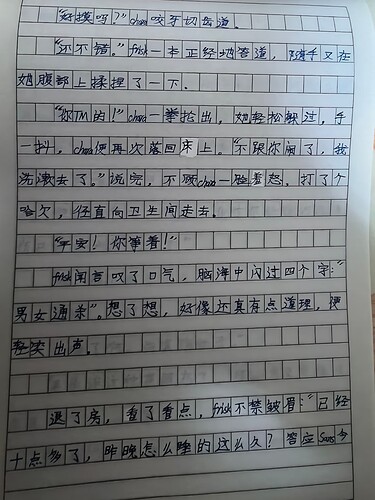 “好摸吗？”chara咬牙切齿道。
“还不错。”frisk一本正经地答道，随手又在
她腹部上揉捏了一下。
“你TM的！”chara一拳抡出，她轻松躲过，手
一抖，chara便再次落回床上。“不跟你闹了，我
洗漱去了。”说完，不顾chara一脸羞怒，打了个
哈欠，径直向卫生间走去。
“平安！你等着！”
frisk闻言叹了口气，脑海中闪过四个字：“
男女通杀”。想了想，好像还真有点道理，便
轻笑出声。
退了房，看了看点，frisk不禁皱眉：“已经
十点多了，昨晚怎么睡的这么久？答应Sans今